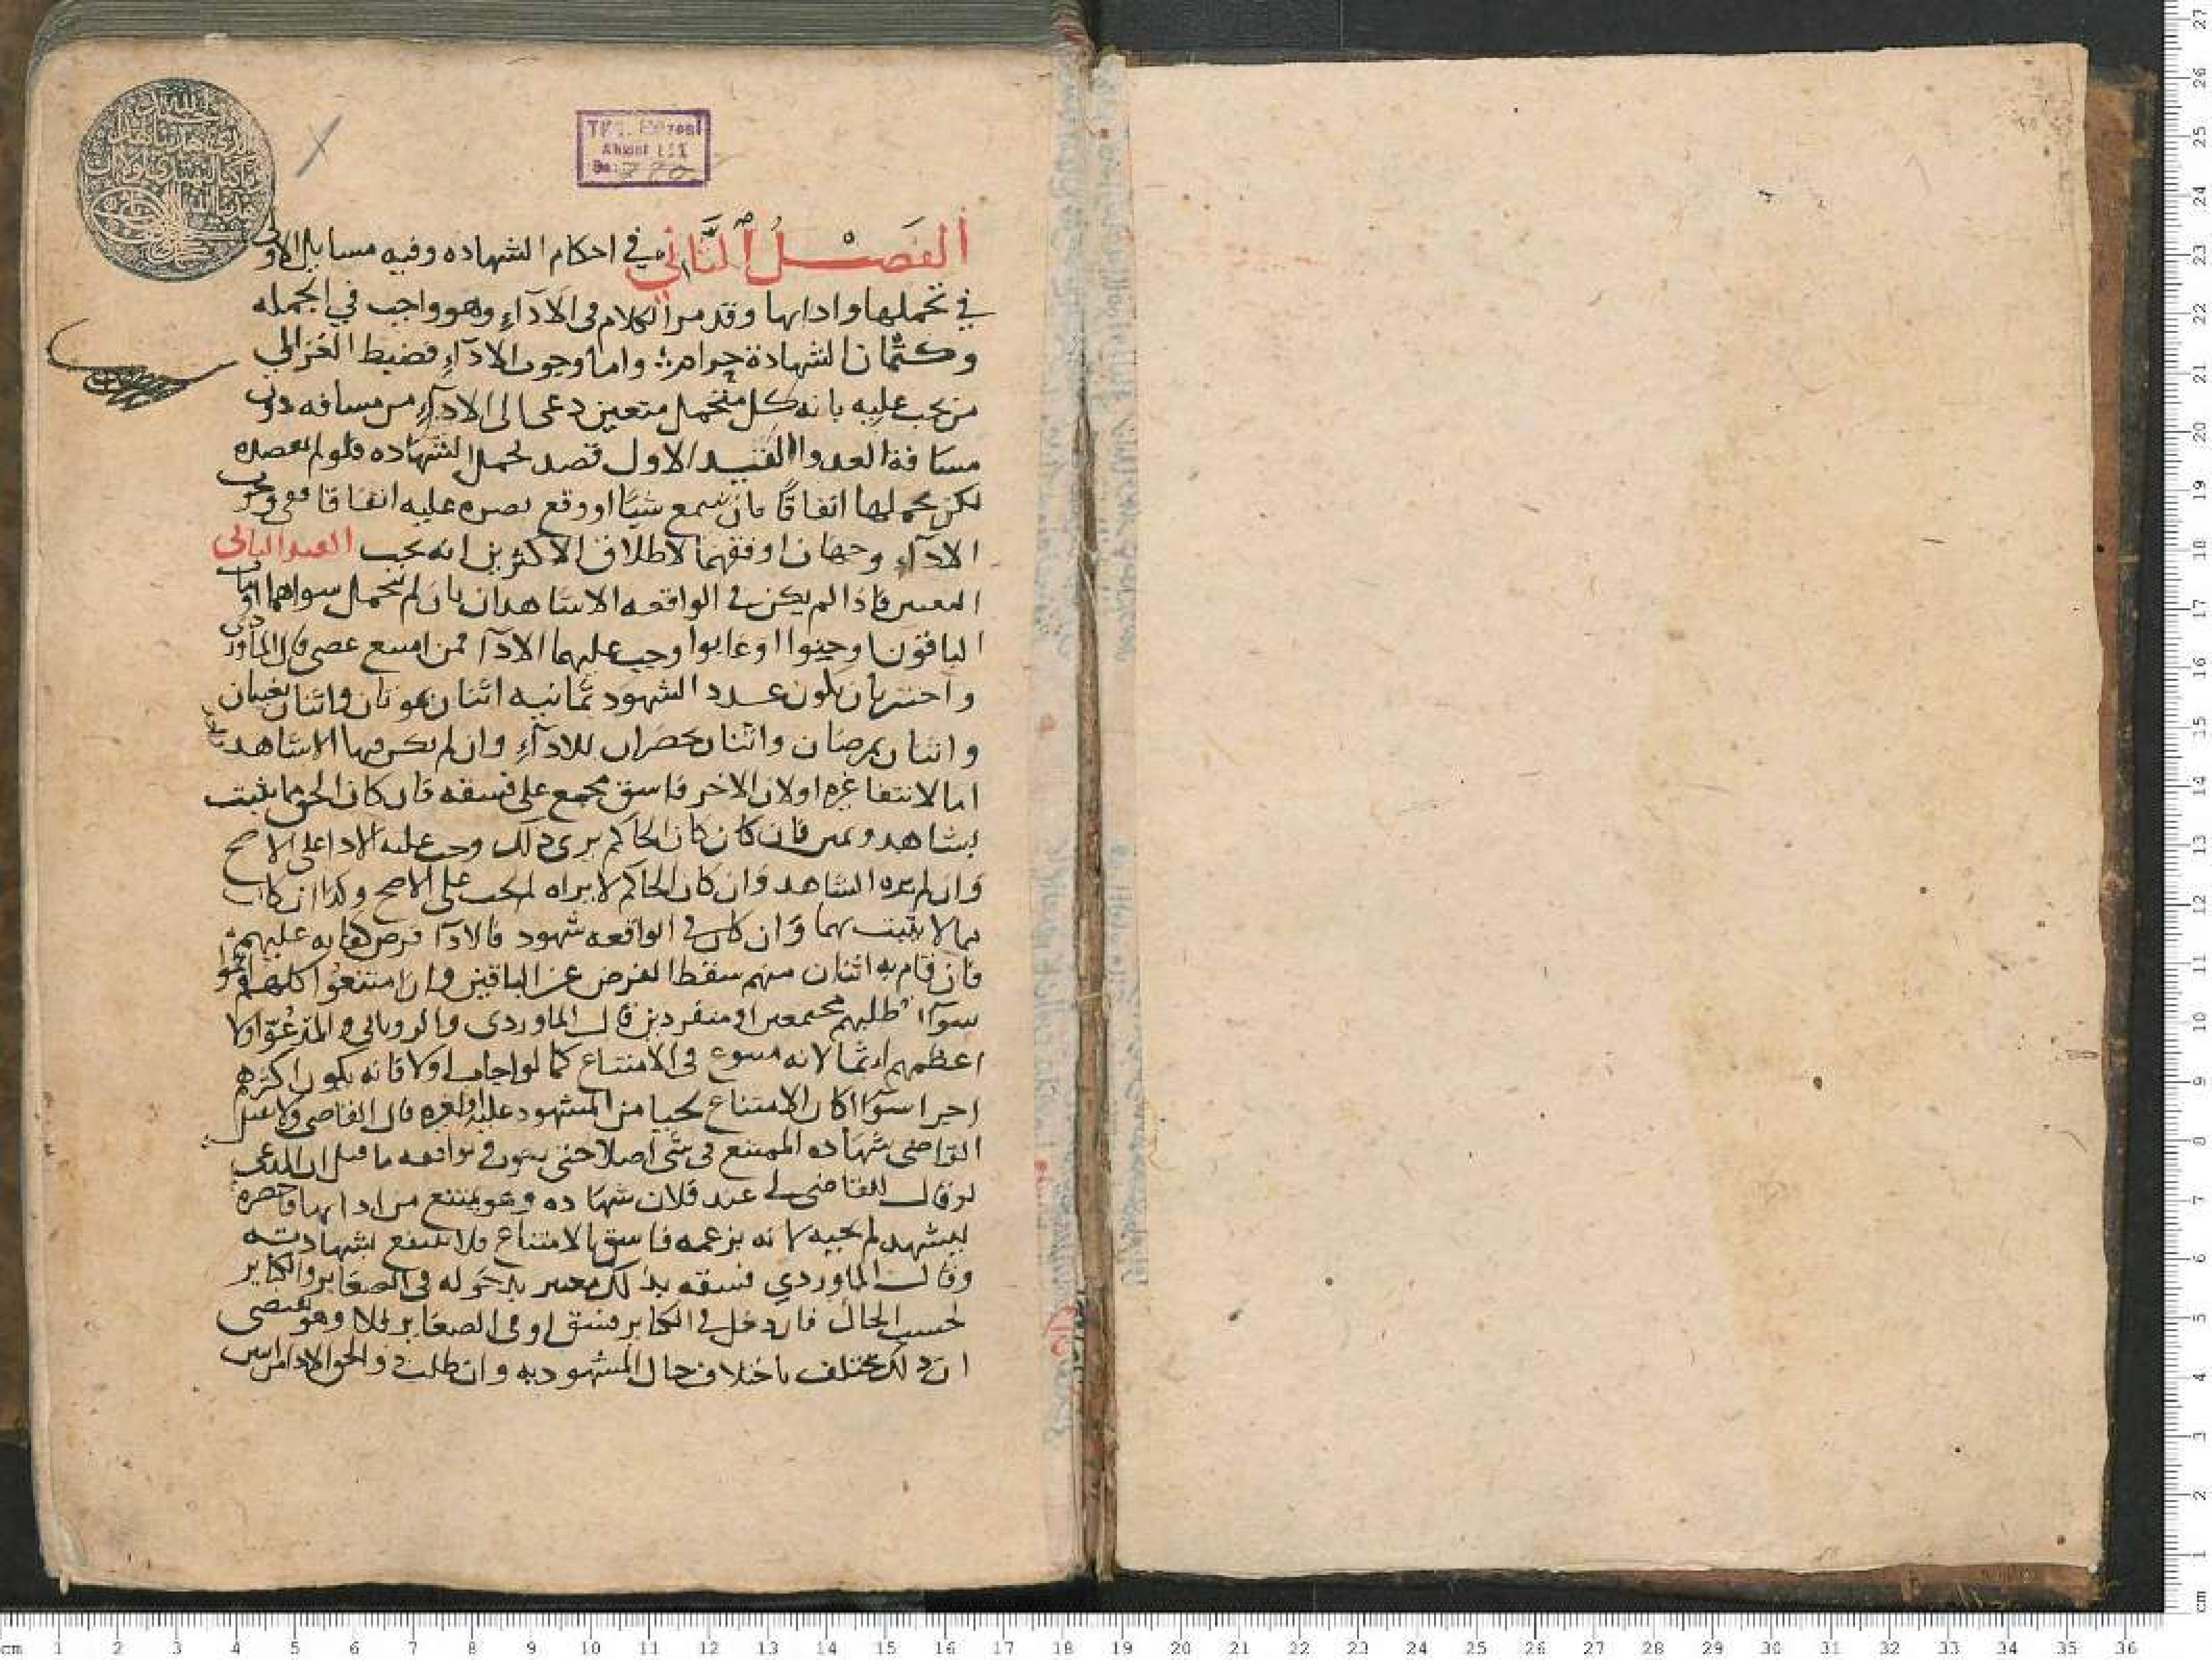 الفَصْلُ الثَّاني في احكام الشهاده وفيه مسايل الاولى
في تحملها وادايها وقد مر الكلام فى الادآءِ وهو واجب في الجمله
وكتمان الشهادة حرام واما وجوب الادآءِ فضبط الغزالي
من يجب عليه بانه كل متحمل متعين دعى الى الادآءِ من مسافه دون
مسافة العدوا القيد الاول قصد تحمل الشهاده فلو لم يقصده
لكن تحملها اتفاقًا بان سمع شيًا او وقع بصره عليه اتفاقا ففى وجوب
الادآءِ وجهان اوفقهما لاطلاق الاكثرين انه يجب القيد الثانى
التعين فاذا لم يكن في الواقعه الا شاهدان بان لم يتحمل سواهما او مات
الباقون او جنوا او غابوا وجب عليهما الادآ فمن امتنع عصى قال الماوردى
واحترز بان يكون عدد الشهود ثمانيه اثنان يموتان واثنان يغيبان
واثنان يمرضان واثنان يحضران للادآءِ وان لم يكن فيها الا شاهد واحد
اما لانتفا غيره او لان الاخر فاسق مجمع على فسقه فان كان الحق مما يثبت
بشاهد ويمين فان كان كان الحاكم يرى ذلك وجب عليه الادا على الاصح
وان لم يره الشاهد وان كان الحاكم لا يراه لم يجب على الاصح وكذا ان كان
مما لا يثبت بهما وان كان في الواقعه شهود فالادآ فرض كفايه عليهم
فان قام به اثنان منهم سقط الفرض عن الباقين وان امتنعوا كلهم اثموا
سوآا طلبهم مجتمعين او منفردين قال الماوردى والرويانى والمدعوّ اولا
اعظمهم اثما لانه متبوع فى الامتناع كما لو اجاب اولا فانه يكون اكثرهم
اجرا سوآا كان الامتناع حيا من المشهود عليه او لغيره قال القاضى ولا يقبل
القاضى شهاده الممتنع فى شى اصلا حتى يتوب في تواقعه ما قبل ان المدعى
لو قال للقاضى لى عند فلان شهاده وهو يمتنع من ادايها فاحضره
ليشهد لم يجبه لانه بزعمه فاسق بالامتناع فلا ينتفع بشهادته
وقال الماوردي فسقه بذلك معتبر بدخوله فى الصغاير والكباير
بحسب الحال فان دخل في الكباير فسق او فى الصغاير فلا وهو يقتضى
ان ذلك يختلف باختلاف حال المشهود به وان طلب ذو الحق الادا من اثنين